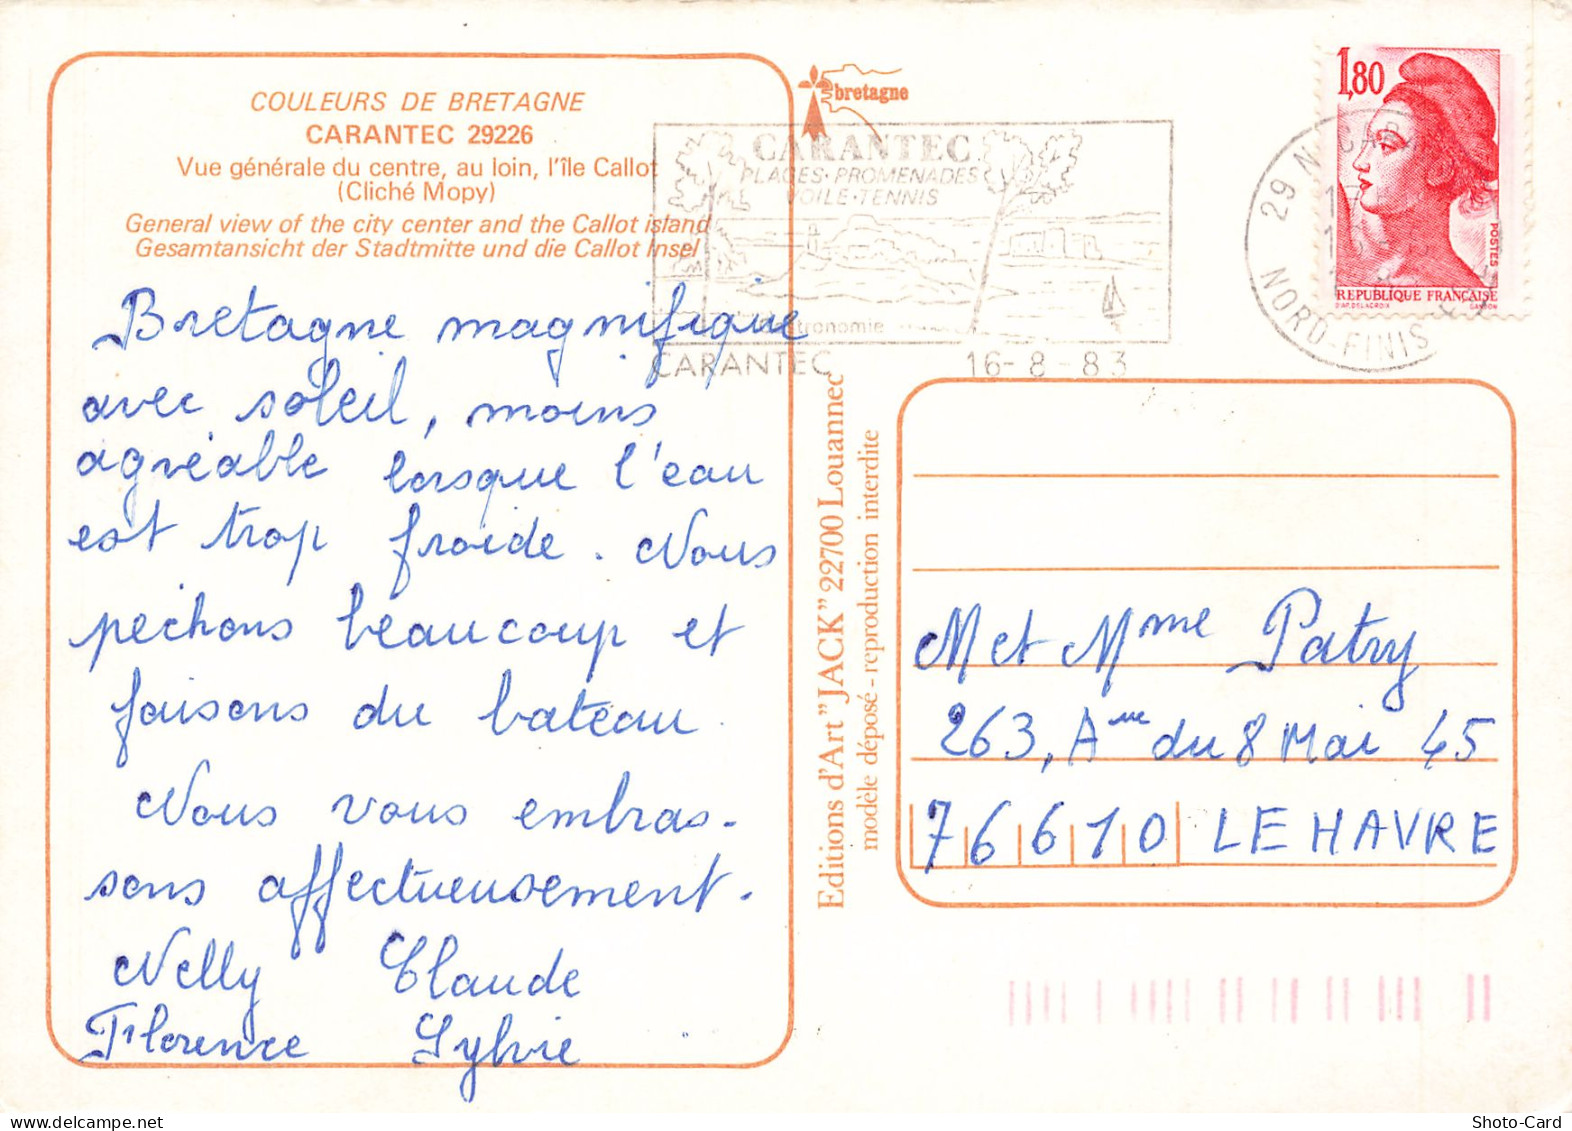 COULEURS DE BRETAGNE
CARANTEC 29226
Vue générale du centre, au loin, l'île Callot
(Cliché Mopy)
General view of the city center and the Callot island
Gesamtansicht der Stadtmitte und die Callot Insel
Bretagne magnifique
avec soleil, moins
agréable lorsque l'eau
est trop froide. Nous
pechons beaucoup et
faisons du bateau.
Nous vous embras-
sons affectueusement.
Nelly Claude
Florence Sylvie
bretagne
CARANTEC
PLAGES·PROMENADES
VOILE·TENNIS
CARANTEC 16-8-83
29 N
NORD-FINIS
1,80
POSTES
REPUBLIQUE FRANÇAISE
D'AP. DELACROIX GANDON
Editions d'Art "JACK" 22700 Louannec
modèle déposé - reproduction interdite
M et Mme Patry
263, Aue du 8 Mai 45
76610 LE HAVRE
Shoto-Card